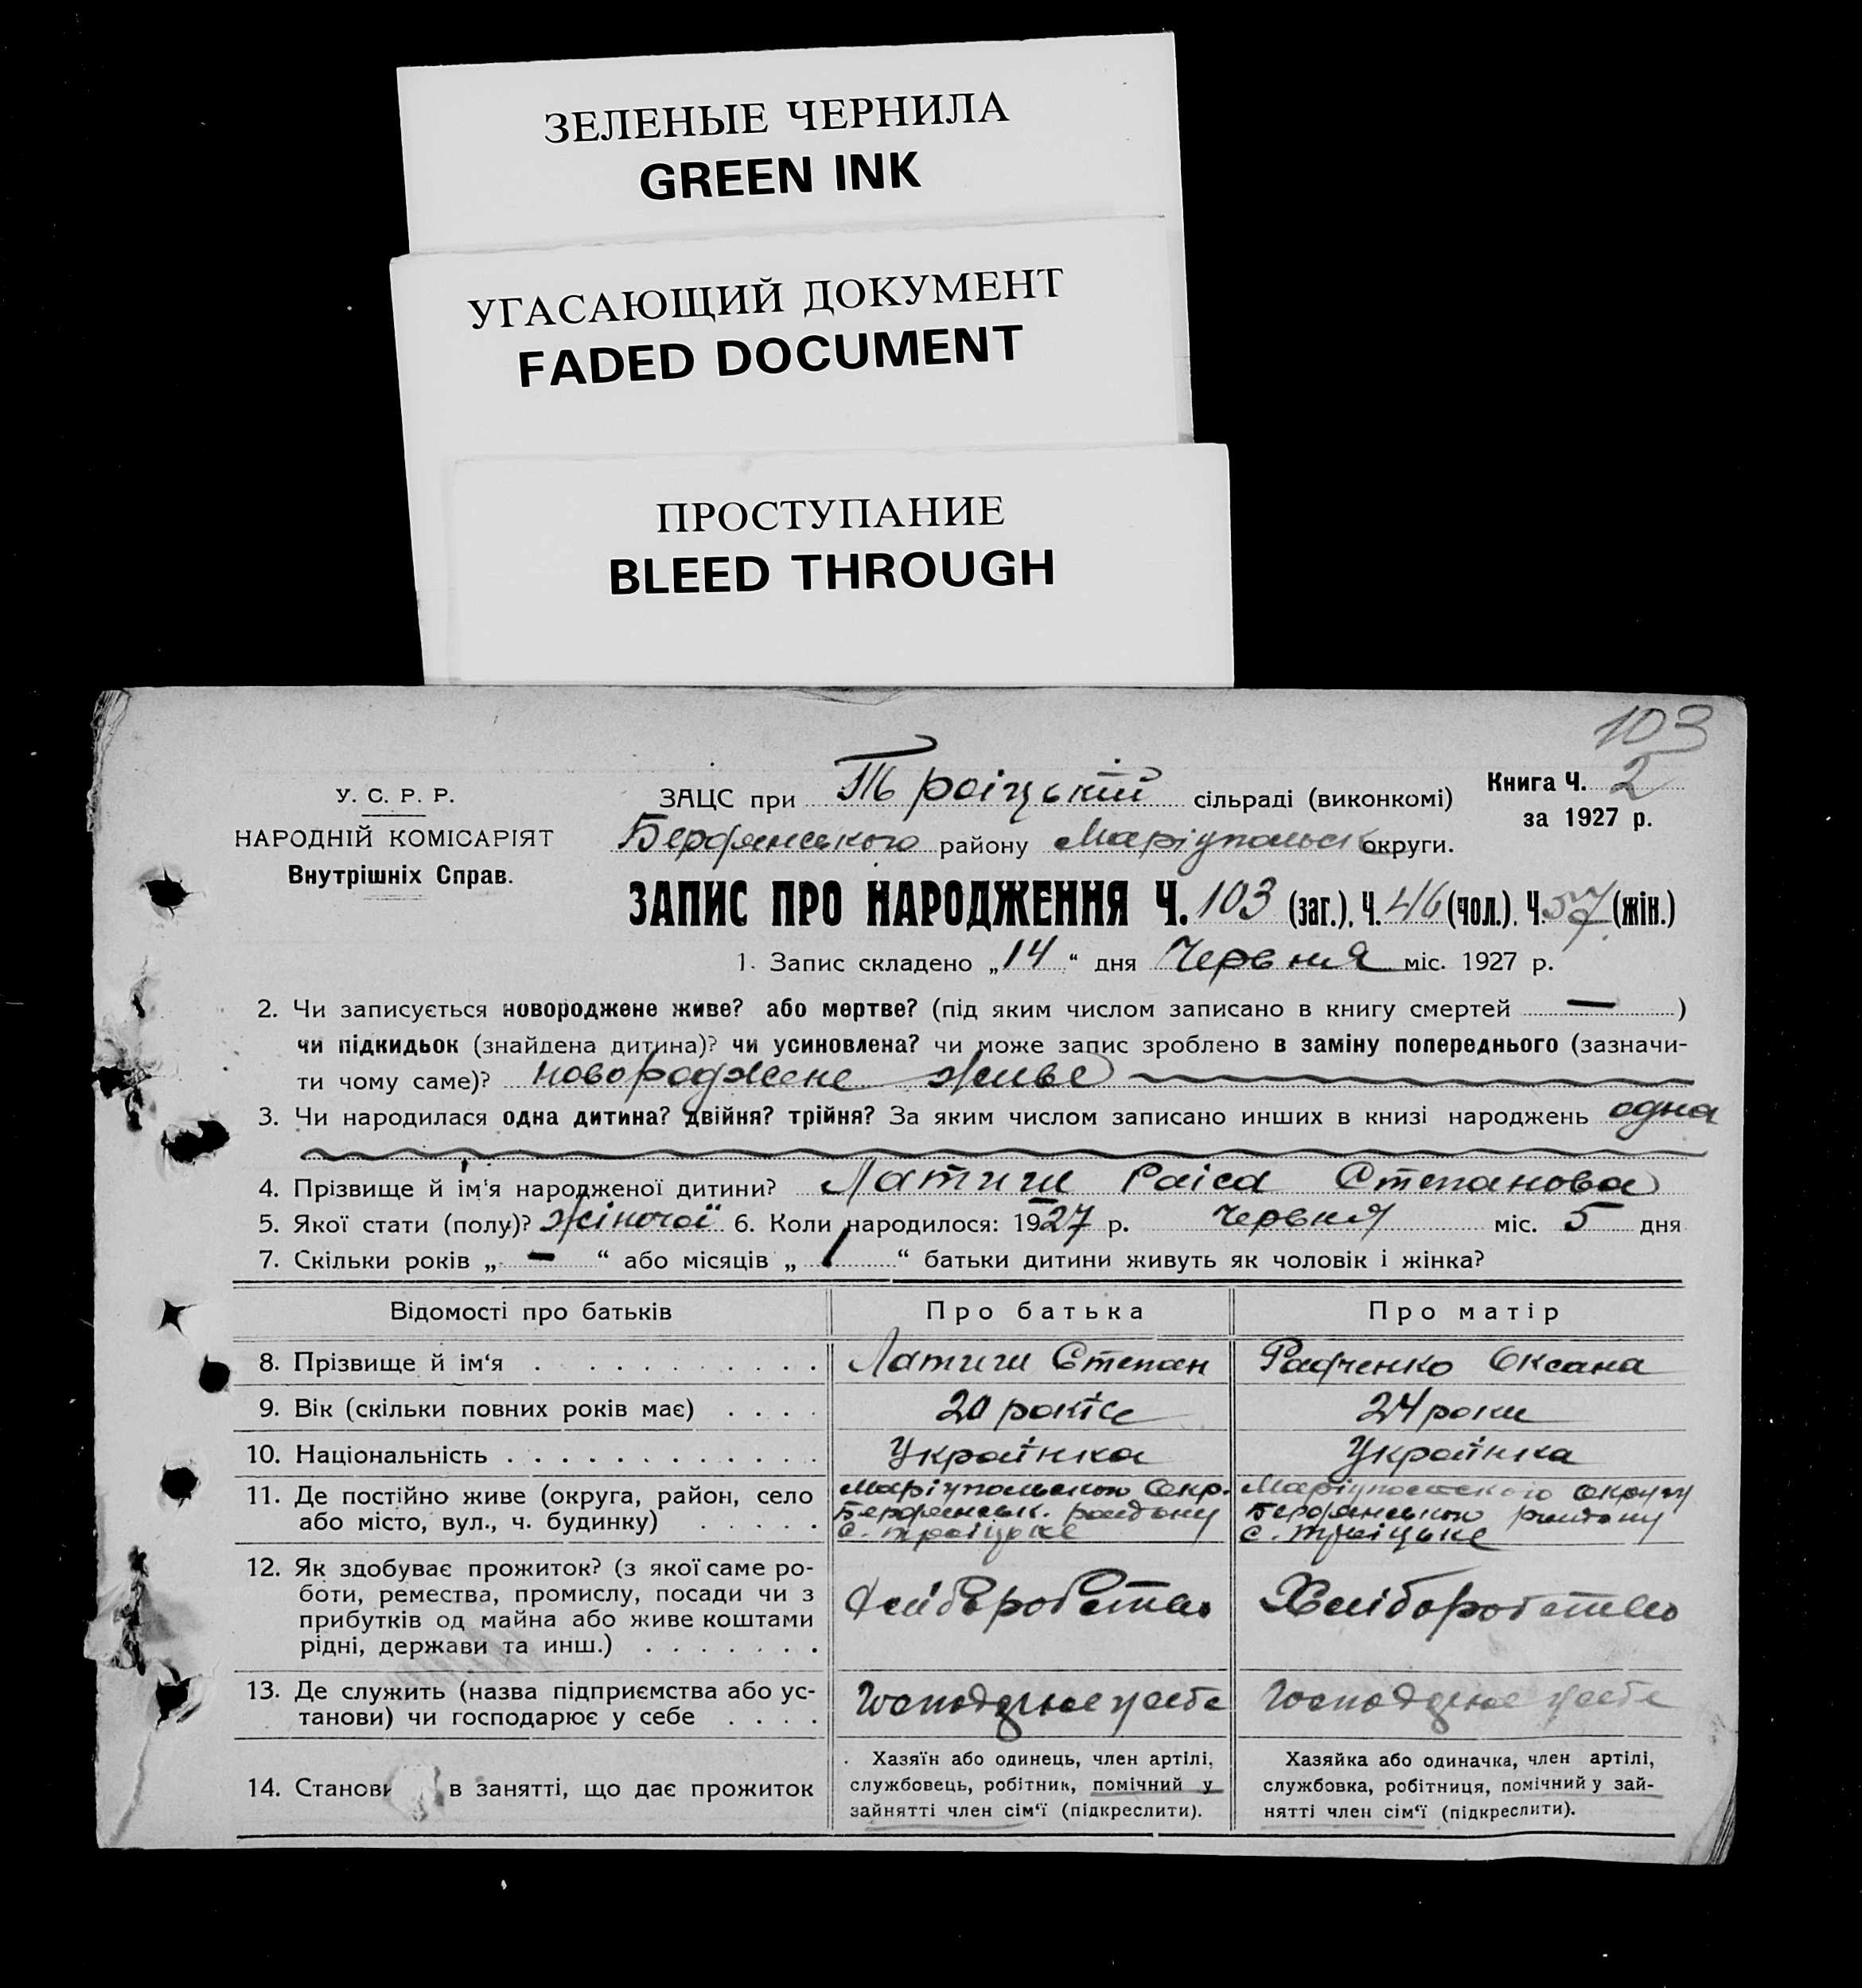 ЗЕЛЕНЫЕ ЧЕРНИЛА
GREEN INK
УГАСАЮЩИЙ ДОКУМЕНТ
FADED DOCUMENT
ПРОСТУПАНИЕ
BLEED THROUGH
103
У. С. Р. Р.
НАРОДНІЙ КОМІСАРІЯТ
Внутрішніх Справ.
ЗАЦС при Троіцькій сільраді (виконкомі)
Бердянського району Маріупольськ округи.
Книга Ч. 2
за 1927 р.
ЗАПИС ПРО НАРОДЖЕННЯ Ч. 103 (заг.), Ч. 46 (чол.), Ч. 57 (жін.)
1. Запис складено „14“ дня Червня міс. 1927 р.
2. Чи записується новороджене живе? або мертве? (під яким числом записано в книгу смертей — )
чи підкидьок (знайдена дитина)? чи усиновлена? чи може запис зроблено в заміну попереднього (зазначи-
ти чому саме)? новороджене живе
3. Чи народилася одна дитина? двійня? трійня? За яким числом записано инших в книзі народжень одна
4. Прізвище й ім'я народженої дитини? Латиш Раіса Степанова
5. Якої стати (полу)? жіночої 6. Коли народилося: 1927 р. Червня міс. 5 дня
7. Скільки років „ — “ або місяців „ “ батьки дитини живуть як чоловік і жінка?
Відомості про батьків Про батька Про матір
8. Прізвище й ім'я Латиш Степан Радченко Оксана
9. Вік (скільки повних років має) 20 років 24 роки
10. Національність Українка Українка
11. Де постійно живе (округа, район, село
або місто, вул., ч. будинку)
Маріупольською Окр.
Бердянськ. району
с. Троіцьке
Маріупольського округу
Бердянського району
с. Троіцьке
12. Як здобуває прожиток? (з якої саме ро-
боти, ремества, промислу, посади чи з
прибутків од майна або живе коштами
рідні, держави та инш.)
Хліборобство
Хліборобство
13. Де служить (назва підприємства або ус-
танови) чи господарює у себе
Господарює у себе
Господарює у себе
14. Станови в занятті, що дає прожиток
Хазяїн або одинець, член артілі,
службовець, робітник, помічний у
зайнятті член сім'ї (підкреслити).
Хазяйка або одиначка, член артілі,
службовка, робітниця, помічний у зай-
нятті член сім'ї (підкреслити).